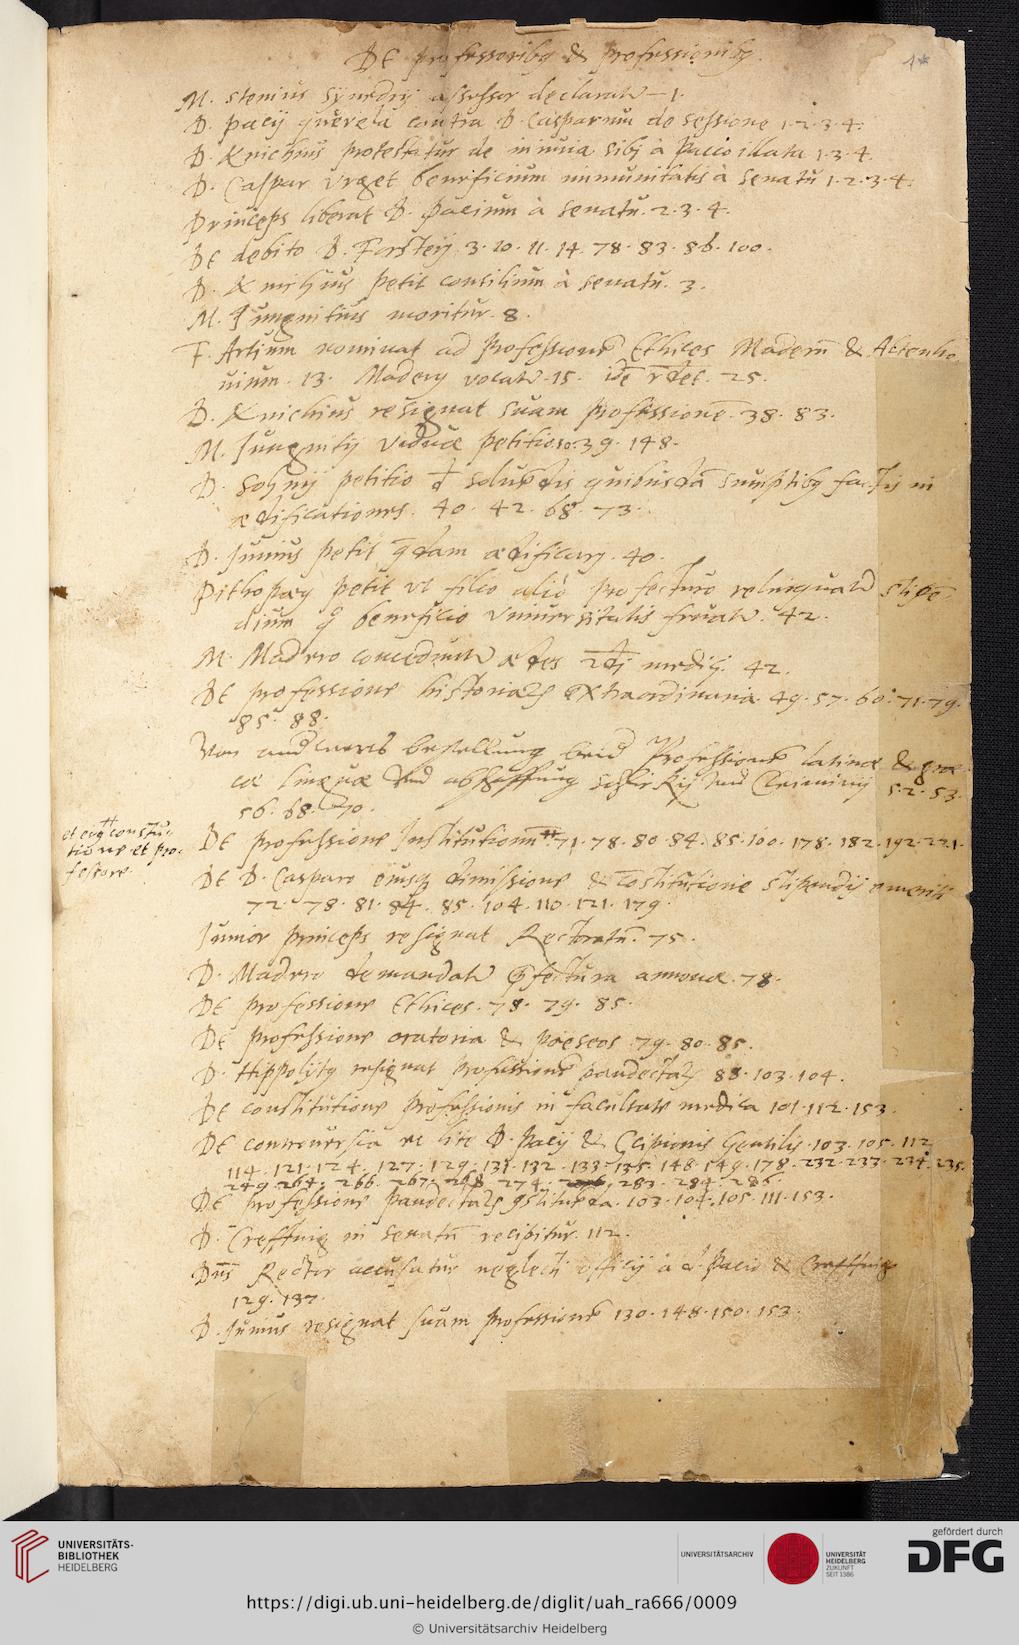 De professoribꝯ & professionibꝯ.
1*
M. Stenius synedrij assessor declaratur – 1.
D. Pacij querela contra D. Casparum de sessione 1·2·3·4.
D. Knichius protestatur de iniuria sibj à Pacio illata 1·3·4.
D. Caspar vrget beneficium immunitatis à senatu 1·2·3·4.
Princeps liberat D. Pacium à senatu. 2·3·4.
De debito D. Forsterj 3·10·11·14·78·83·86·100.
D. Knichius petit consilium à senatu. 3.
M. Jungnitius moritur. 8.
F. Artium nominat ad professionē Ethices Maderū &
uium. 13. Maderꝯ vocatur. 15. 25.
D. Knichius resignat suam professionē. 38. 83.
M. Jungnitij viduæ petitio. 39. 148.
D. petitio quibusdā sumptibꝯ factis in
ædificationes. 40. 42. 68. 73.
D. Junius petit q̄dam ædificarj. 40.
Pithopœꝯ petit vt filio aliò profecturo relinquatur stipē-
dium q beneficio vniuersitatis fruatur. 42.
M. Madero conceduntur ædes medij. 42.
De professione historiarū extraordinaria 49·57·60·71·79·
85·88.
Von bestellung beid Professionē latinæ & græ
cæ linguæ vnd abschaffung vnd 52·53·
56·68·70.
De professione Institutionū # 71·78·80·84·85·100·178·182·192·221.
# et eiꝯ constitu-
tione et pro-
fessore.
De D. Casparo eiusq dimissione & cōstitutione stipendij emeriti
72·78·81·84·85·104·110·121·179.
Junior princeps resignat Rectoratū. 75.
D. Madero demandatur p̄fectura annonæ. 78.
De professione Ethices. 78. 79. 85.
De professione oratoria & poeseos 79·80·85.
D. Hippolytꝯ resignat professionē pandectarū 88·103·104.
De constitutione professionis in facultate medica 101·112·153
De controuersia et lite D. Pacij & Scipionis Gentilis·103·105·112
114·121·124·127·129·131·132·133·135·148·149·178·232·233·234·235·
249·264·266·267·268·274· 283·284·286.
De professione pandectarū 103·104·105·111·153.
D. in senatū recipitur. 112.
Dn̄s Rector accusatur neglecti officij à d. Pacio &
129·137.
D. Junius resignat suam professionē 130·148·150·153.
UNIVERSITÄTS-
BIBLIOTHEK
HEIDELBERG
UNIVERSITÄTSARCHIV
UNIVERSITÄT
HEIDELBERG
ZUKUNFT
SEIT 1386
gefördert durch
DFG
https://digi.ub.uni-heidelberg.de/diglit/uah_ra666/0009
© Universitätsarchiv Heidelberg